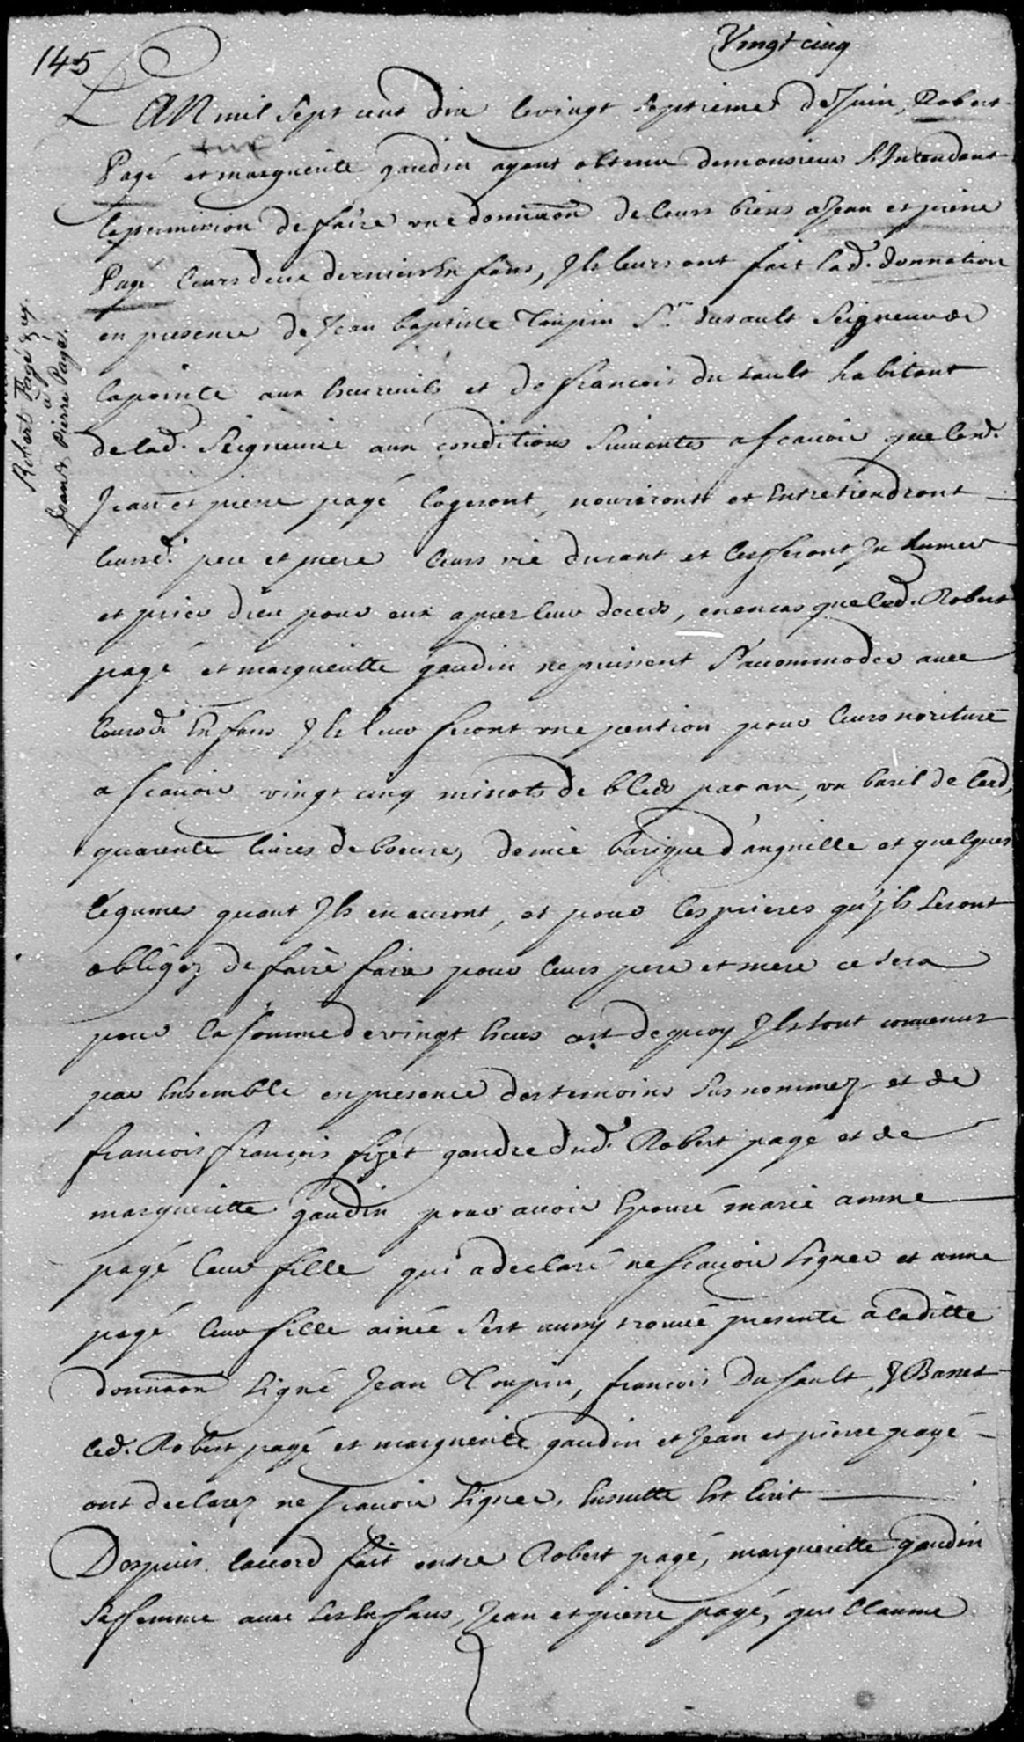 145
Vingt cinq
L'AN mil sept cent dix le vingt septieme de Juin, Robert
Pagé et marguerite gaudin ayant obtenu de monsieur L'Intendant
la permission de faire une donnaon de leurs biens a Jean et pierre
Pagé leurs deux derniers En fans, Ils leurs ont fait lad. donnation
en presence de Jean baptiste Toupin Sr. dusault Seigneur de
la pointe aux Ecureuils et de francois du sault habitant
de lad. Seigneurie aux conditions Suivantes a scavoir que lesd.
Jean et pierre pagé logeront, nouriront et Entretiendront
leursd. pere et mere leurs vie durant et les feront In humer
et prier dieu pour eux apres leur deceds, en en cas que led. Robert
pagé et margueritte gaudin ne puissent S'accommoder avec
leursd. En fans Ils leur feront une pention pour leurs noriture
a scavoir vingt cinq minots de bled par an, un baril de lard,
quarente livres de beurre, demie barique d'anguille et quelques
légumes quant Ils en auront, et pour les prieres qu'ils seront
obligez de faire faire pour leurs pere et mere ce sera
pour la somme de vingt Ecus de quoy Ils sont convenus
par Ensemble en presence des temoins sus nommez et de
francois françois fizet gendre dud. Robert page et de
margueritte gaudin pour avoir Epousé marie anne
pagé leur fille qui a declaré ne scavoir signer et anne
pagé leur fille ainée s'est aussy trouvé presente a la ditte
donnaon signé Jean Toupin, francois Du sault, & Basset
led. Robert pagé et marguerite gaudin et Jean et pierre pagé
ont declarez ne scavoir signer, Ensuitte Est Ecrit
Despuis l'accord fait entre Robert pagé, marguerite gaudin
sa femme avec ses Enfans, Jean et pierre pagé, guillaume
Robert Pagé & ux
à
Jean & Pierre Pagé.